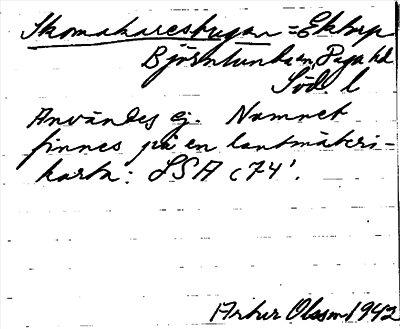 Skomakarestugan = Ektorp
Björnlunda sn, Daga hd
Söd. l
Användes ej. Namnet
finnes på en lantmäteri-
karta: LSA C 74¹.
Artur Olsson 1942